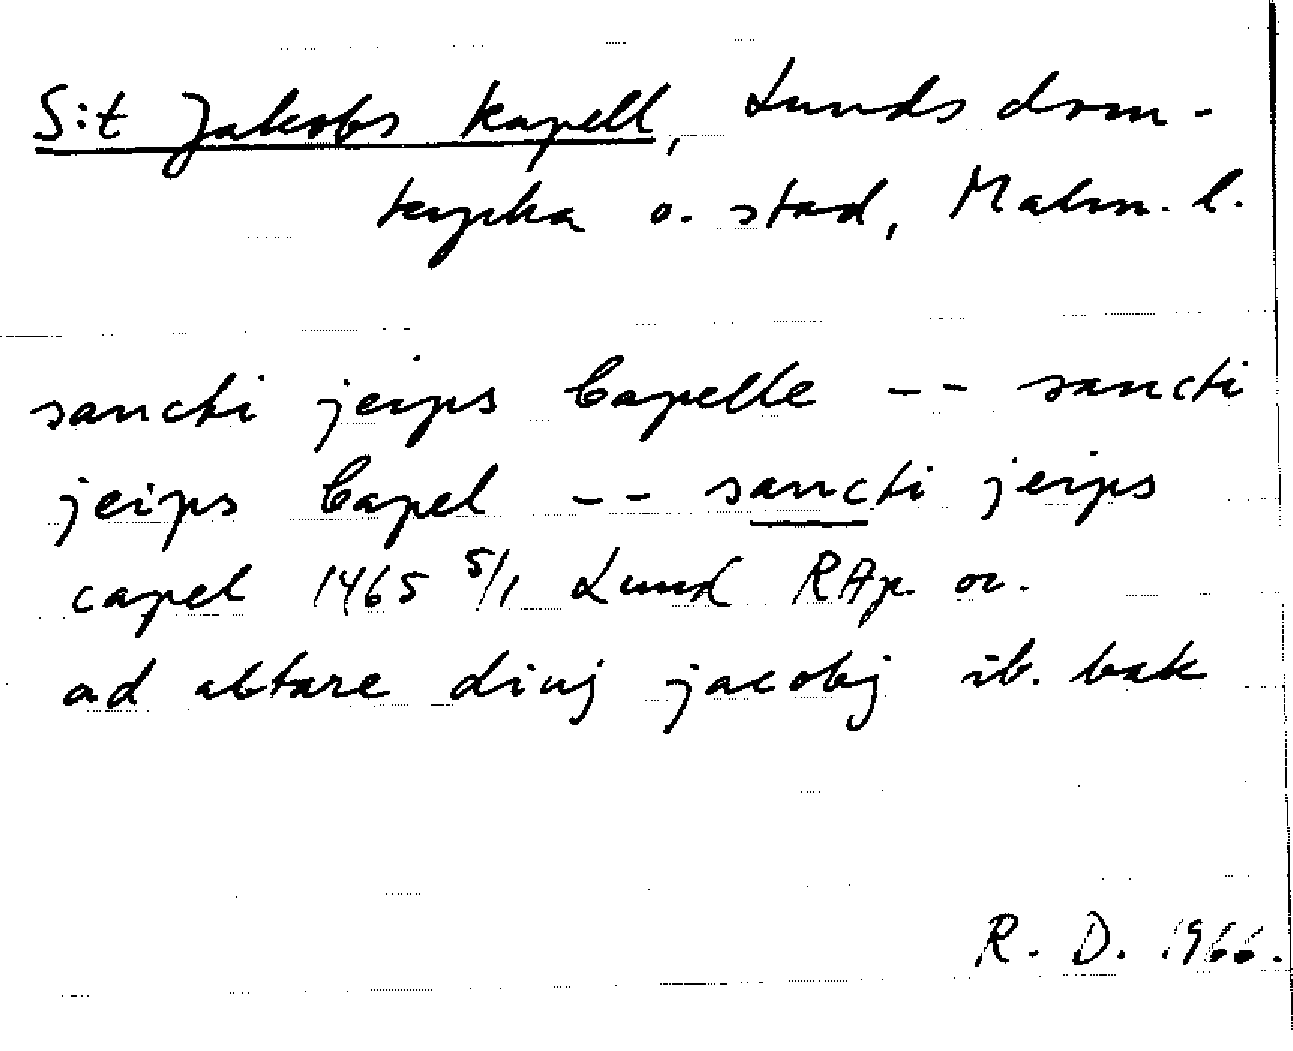 S:t Jakobs kapell, Lunds dom-
kyrka o. stad, Malm. l.
sancti jeips Capelle -- sancti
jeips Capel -- sancti jeips
capel 1465 5/1 Lund RAp. or.
ad altare diuj jacobj ib. bak
R. D. 1966.